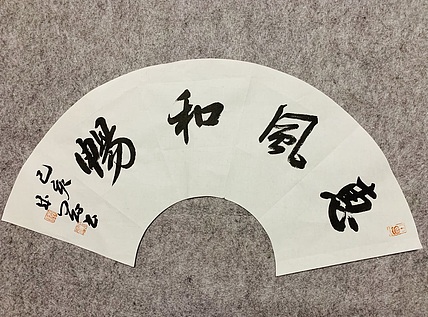 惠風和暢
己亥